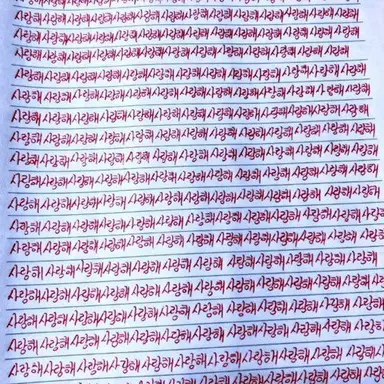 사랑해 사랑해 사랑해 사랑해 사랑해 사랑해 사랑해 사랑해 사랑해 사랑해 사랑해 사랑해 사랑해
사랑해 사랑해 사랑해 사랑해 사랑해 사랑해 사랑해 사랑해 사랑해 사랑해 사랑해 사랑해 사랑해
사랑해 사랑해 사랑해 사랑해 사랑해 사랑해 사랑해 사랑해 사랑해 사랑해 사랑해 사랑해
사랑해 사랑해 사랑해 사랑해 사랑해 사랑해 사랑해 사랑해 사랑해 사랑해 사랑해 사랑해
사랑해 사랑해 사랑해 사랑해 사랑해 사랑해 사랑해 사랑해 사랑해 사랑해 사랑해 사랑해 사랑해
사랑해 사랑해 사랑해 사랑해 사랑해 사랑해 사랑해 사랑해 사랑해 사랑해 사랑해 사랑해 사랑해
사랑해 사랑해 사랑해 사랑해 사랑해 사랑해 사랑해 사랑해 사랑해 사랑해 사랑해 사랑해 사랑해
사랑해 사랑해 사랑해 사랑해 사랑해 사랑해 사랑해 사랑해 사랑해 사랑해 사랑해 사랑해 사랑해
사랑해 사랑해 사랑해 사랑해 사랑해 사랑해 사랑해 사랑해 사랑해 사랑해 사랑해 사랑해 사랑해
사랑해 사랑해 사랑해 사랑해 사랑해 사랑해 사랑해 사랑해 사랑해 사랑해 사랑해 사랑해
사랑해 사랑해 사랑해 사랑해 사랑해 사랑해 사랑해 사랑해 사랑해 사랑해 사랑해 사랑해 사랑해
사랑해 사랑해 사랑해 사랑해 사랑해 사랑해 사랑해 사랑해 사랑해 사랑해 사랑해 사랑해
사랑해 사랑해 사랑해 사랑해 사랑해 사랑해 사랑해 사랑해 사랑해 사랑해 사랑해
사랑해 사랑해 사랑해 사랑해 사랑해 사랑해 사랑해 사랑해 사랑해 사랑해 사랑해 사랑해
사랑해 사랑해 사랑해 사랑해 사랑해 사랑해 사랑해 사랑해 사랑해 사랑해 사랑해 사랑해
사랑해 사랑해 사랑해 사랑해 사랑해 사랑해 사랑해 사랑해 사랑해 사랑해 사랑해
사랑해 사랑해 사랑해 사랑해 사랑해 사랑해 사랑해 사랑해 사랑해 사랑해 사랑해